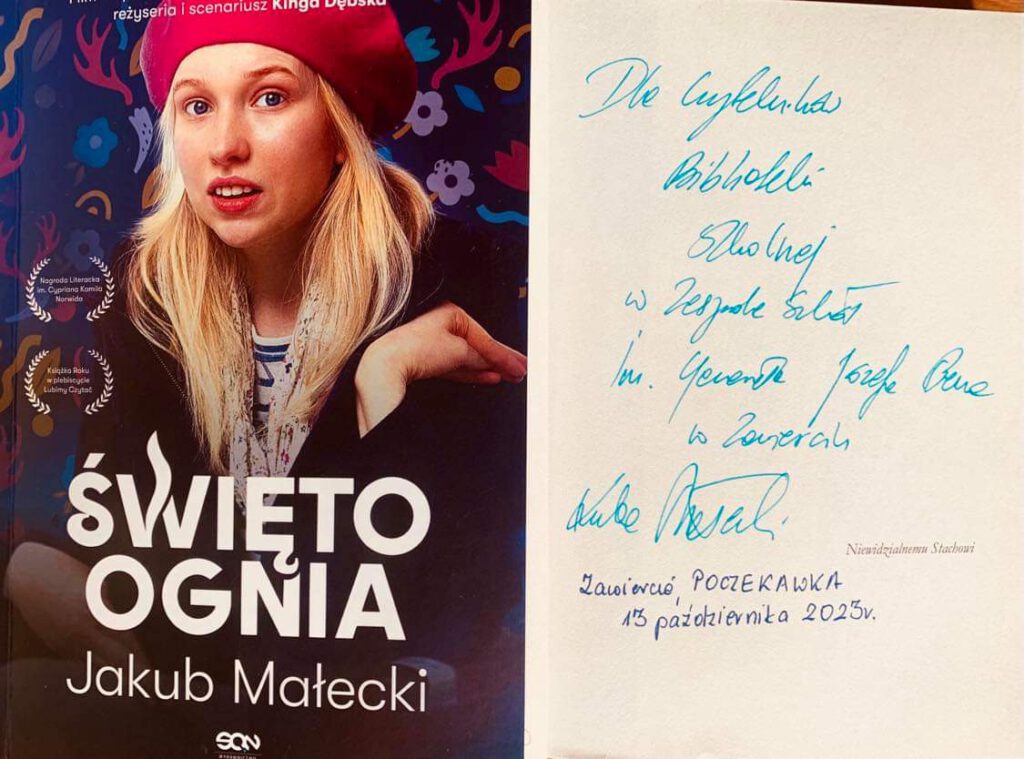 reżyseria i scenariusz Kinga Dębska
Nagroda Literacka
im. Cypriana Kamila
Norwida
Książka Roku
w plebiscycie
Lubimy Czytać
ŚWIĘTO
OGNIA
Jakub Małecki
SQN
Dla Czytelników
Biblioteki
Szkolnej
w Zespole Szkół
Im. Generała Józefa Bema
w Zawierciu
Kuba Małecki
Niewidzialnemu Stachowi
Zawiercie, POCZEKAWKA
13 października 2023r.